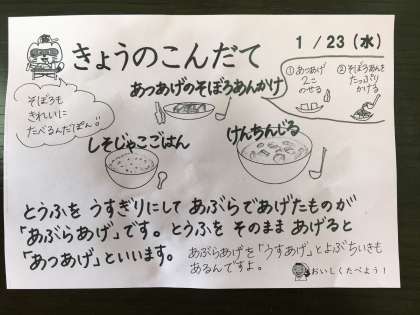 きょうのこんだて
1/23(水)
そぼろも
きれいに
たべるんだぽん!!
あつあげのそぼろあんかけ
①あつあげ
2こ
のせる
②そぼろあんを
たっぷり
かける
しそじゃこごはん
けんちんじる
とうふを うすぎりにして あぶらであげたものが
「あぶらあげ」です。とうふを そのまま あげると
「あつあげ」といいます。
あぶらあげを「うすあげ」とよぶちいきも
あるんですよ。
おいしくたべよう!